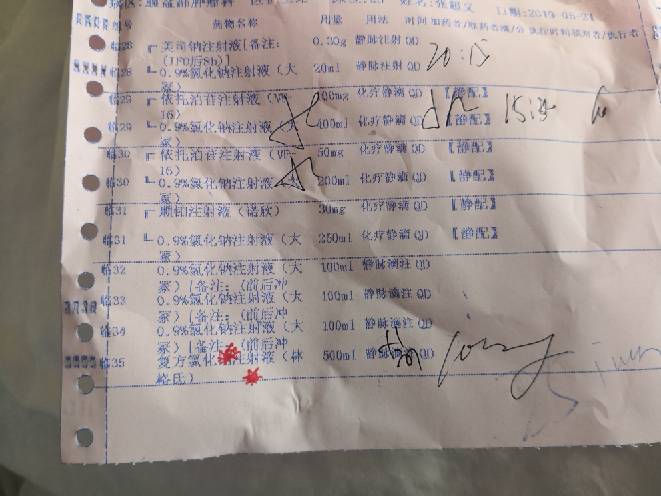 病区: 日期:2019-05-21
组号 药物名称 用量 用法
临28 美司钠注射液[备注: 0.20g 静脉注射 QD 20:15
(IFO后8h)]
临28 0.9%氯化钠注射液(大 20ml 静脉注射 QD
冢)
临29 依托泊苷注射液(VP 100mg 化疗静滴 QD 【静配】
16)
临29 0.9%氯化钠注射液(大 400ml 化疗静滴 QD 【静配】
冢)
临30 依托泊苷注射液(VP 50mg 化疗静滴 QD 【静配】
16)
临30 0.9%氯化钠注射液(大 200ml 化疗静滴 QD 【静配】
冢)
临31 顺铂注射液(诺欣) 30mg 化疗静滴 QD 【静配】
临31 0.9%氯化钠注射液(大 250ml 化疗静滴 QD 【静配】
冢)
临32 0.9%氯化钠注射液(大 100ml 静脉滴注 QD
冢)[备注:(前后冲
临33 0.9%氯化钠注射液(大 100ml 静脉滴注 QD
冢)[备注:(前后冲
临34 0.9%氯化钠注射液(大 100ml 静脉滴注 QD
冢)[备注:(前后冲
临35 复方氯化 注射液(林 500ml 静脉滴注 QD
格氏)